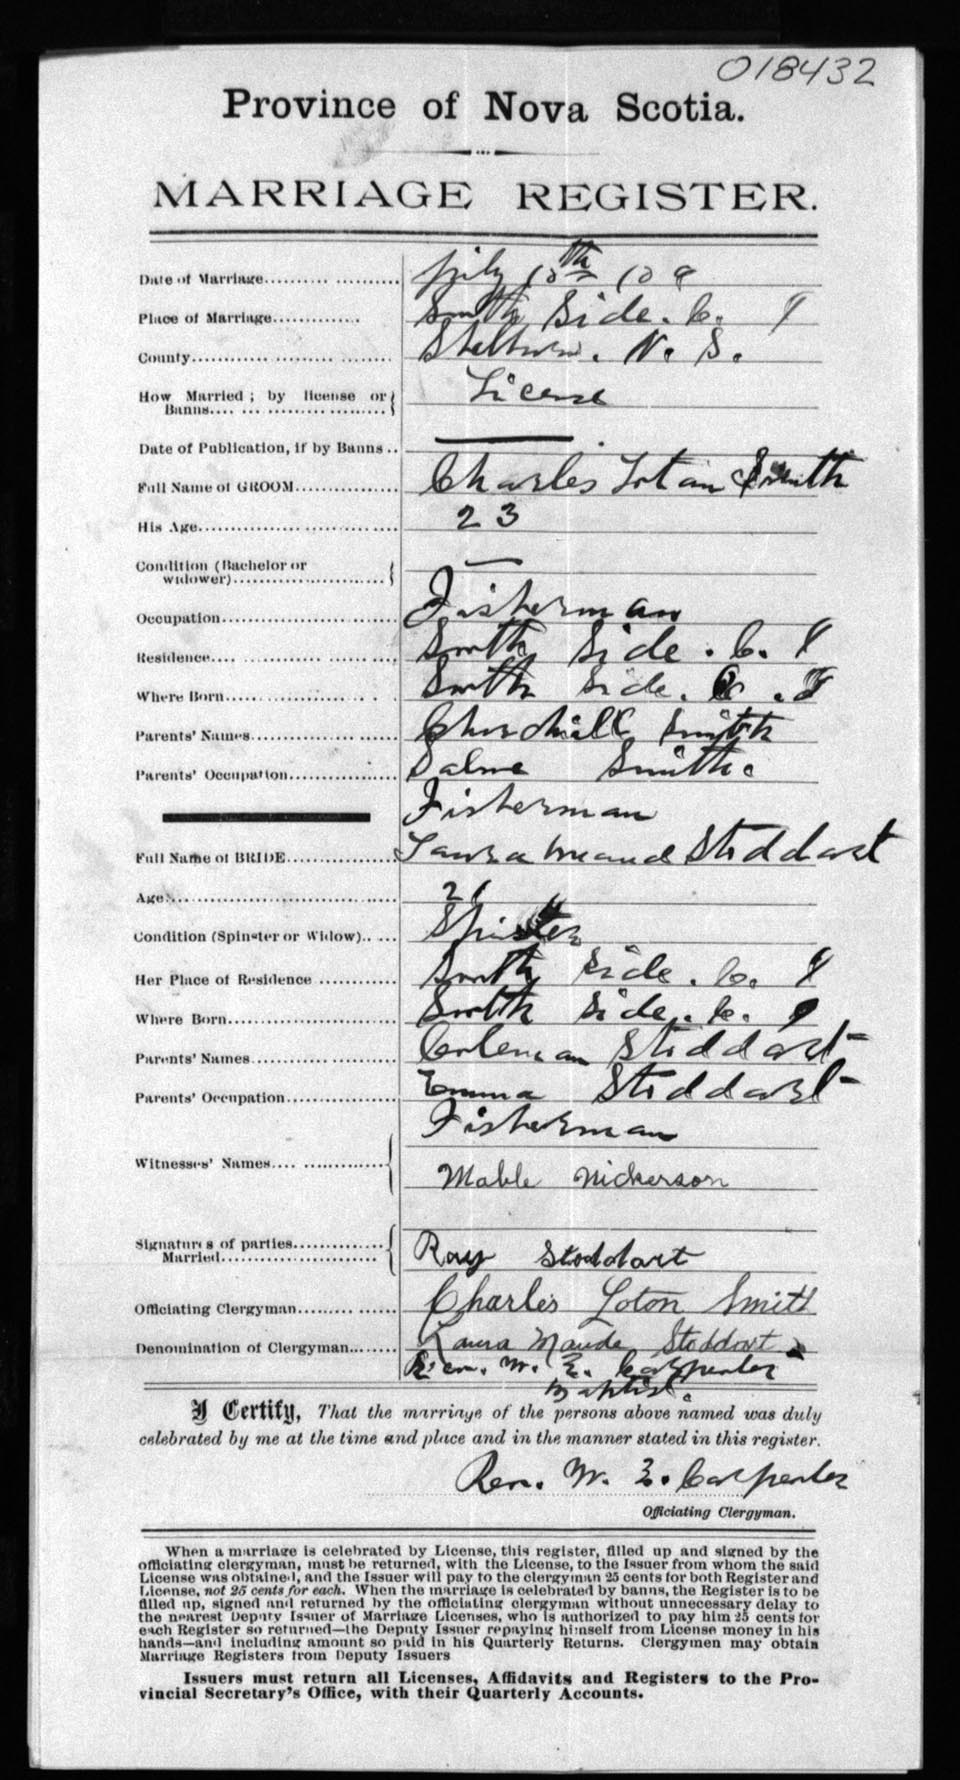 018432
Province of Nova Scotia.
MARRIAGE REGISTER.
Date of Marriage July 10th
Place of Marriage South Side. C. I
County Shelburne. N. S.
How Married; by license or Banns License
Date of Publication, if by Banns
Full Name of GROOM Charles Lotan Smith
His Age 23
Condition (Bachelor or widower)
Occupation Fisherman
Residence South Side. C. I
Where Born South Side. C. I
Parents' Names Churchill Smith
Parents' Occupation Smith.
Fisherman
Full Name of BRIDE Laura Meaud Stoddart
Age 21
Condition (Spinster or Widow) Spinster
Her Place of Residence South Side. C. I
Where Born South Side. C. I
Parents' Names Coleman Stoddart
Parents' Occupation Emma Stoddart
Fisherman
Witnesses' Names Mable Nickerson
Signatures of parties Married Ray Stoddart
Officiating Clergyman Charles Loton Smith
Denomination of Clergyman Laura Maude Stoddart
Rev. W. E. Carpenter
Baptist.
I Certify, That the marriage of the persons above named was duly
celebrated by me at the time and place and in the manner stated in this register.
Rev. W. E. Carpenter
Officiating Clergyman.
When a marriage is celebrated by License, this register, filled up and signed by the
officiating clergyman, must be returned, with the License, to the Issuer from whom the said
License was obtained, and the Issuer will pay to the clergyman 25 cents for both Register and
License, not 25 cents for each. When the marriage is celebrated by banns, the Register is to be
filled up, signed and returned by the officiating clergyman without unnecessary delay to
the nearest Deputy Issuer of Marriage Licenses, who is authorized to pay him 25 cents for
each Register so returned—the Deputy Issuer repaying himself from License money in his
hands—and including amount so paid in his Quarterly Returns. Clergymen may obtain
Marriage Registers from Deputy Issuers
Issuers must return all Licenses, Affidavits and Registers to the Pro-
vincial Secretary's Office, with their Quarterly Accounts.